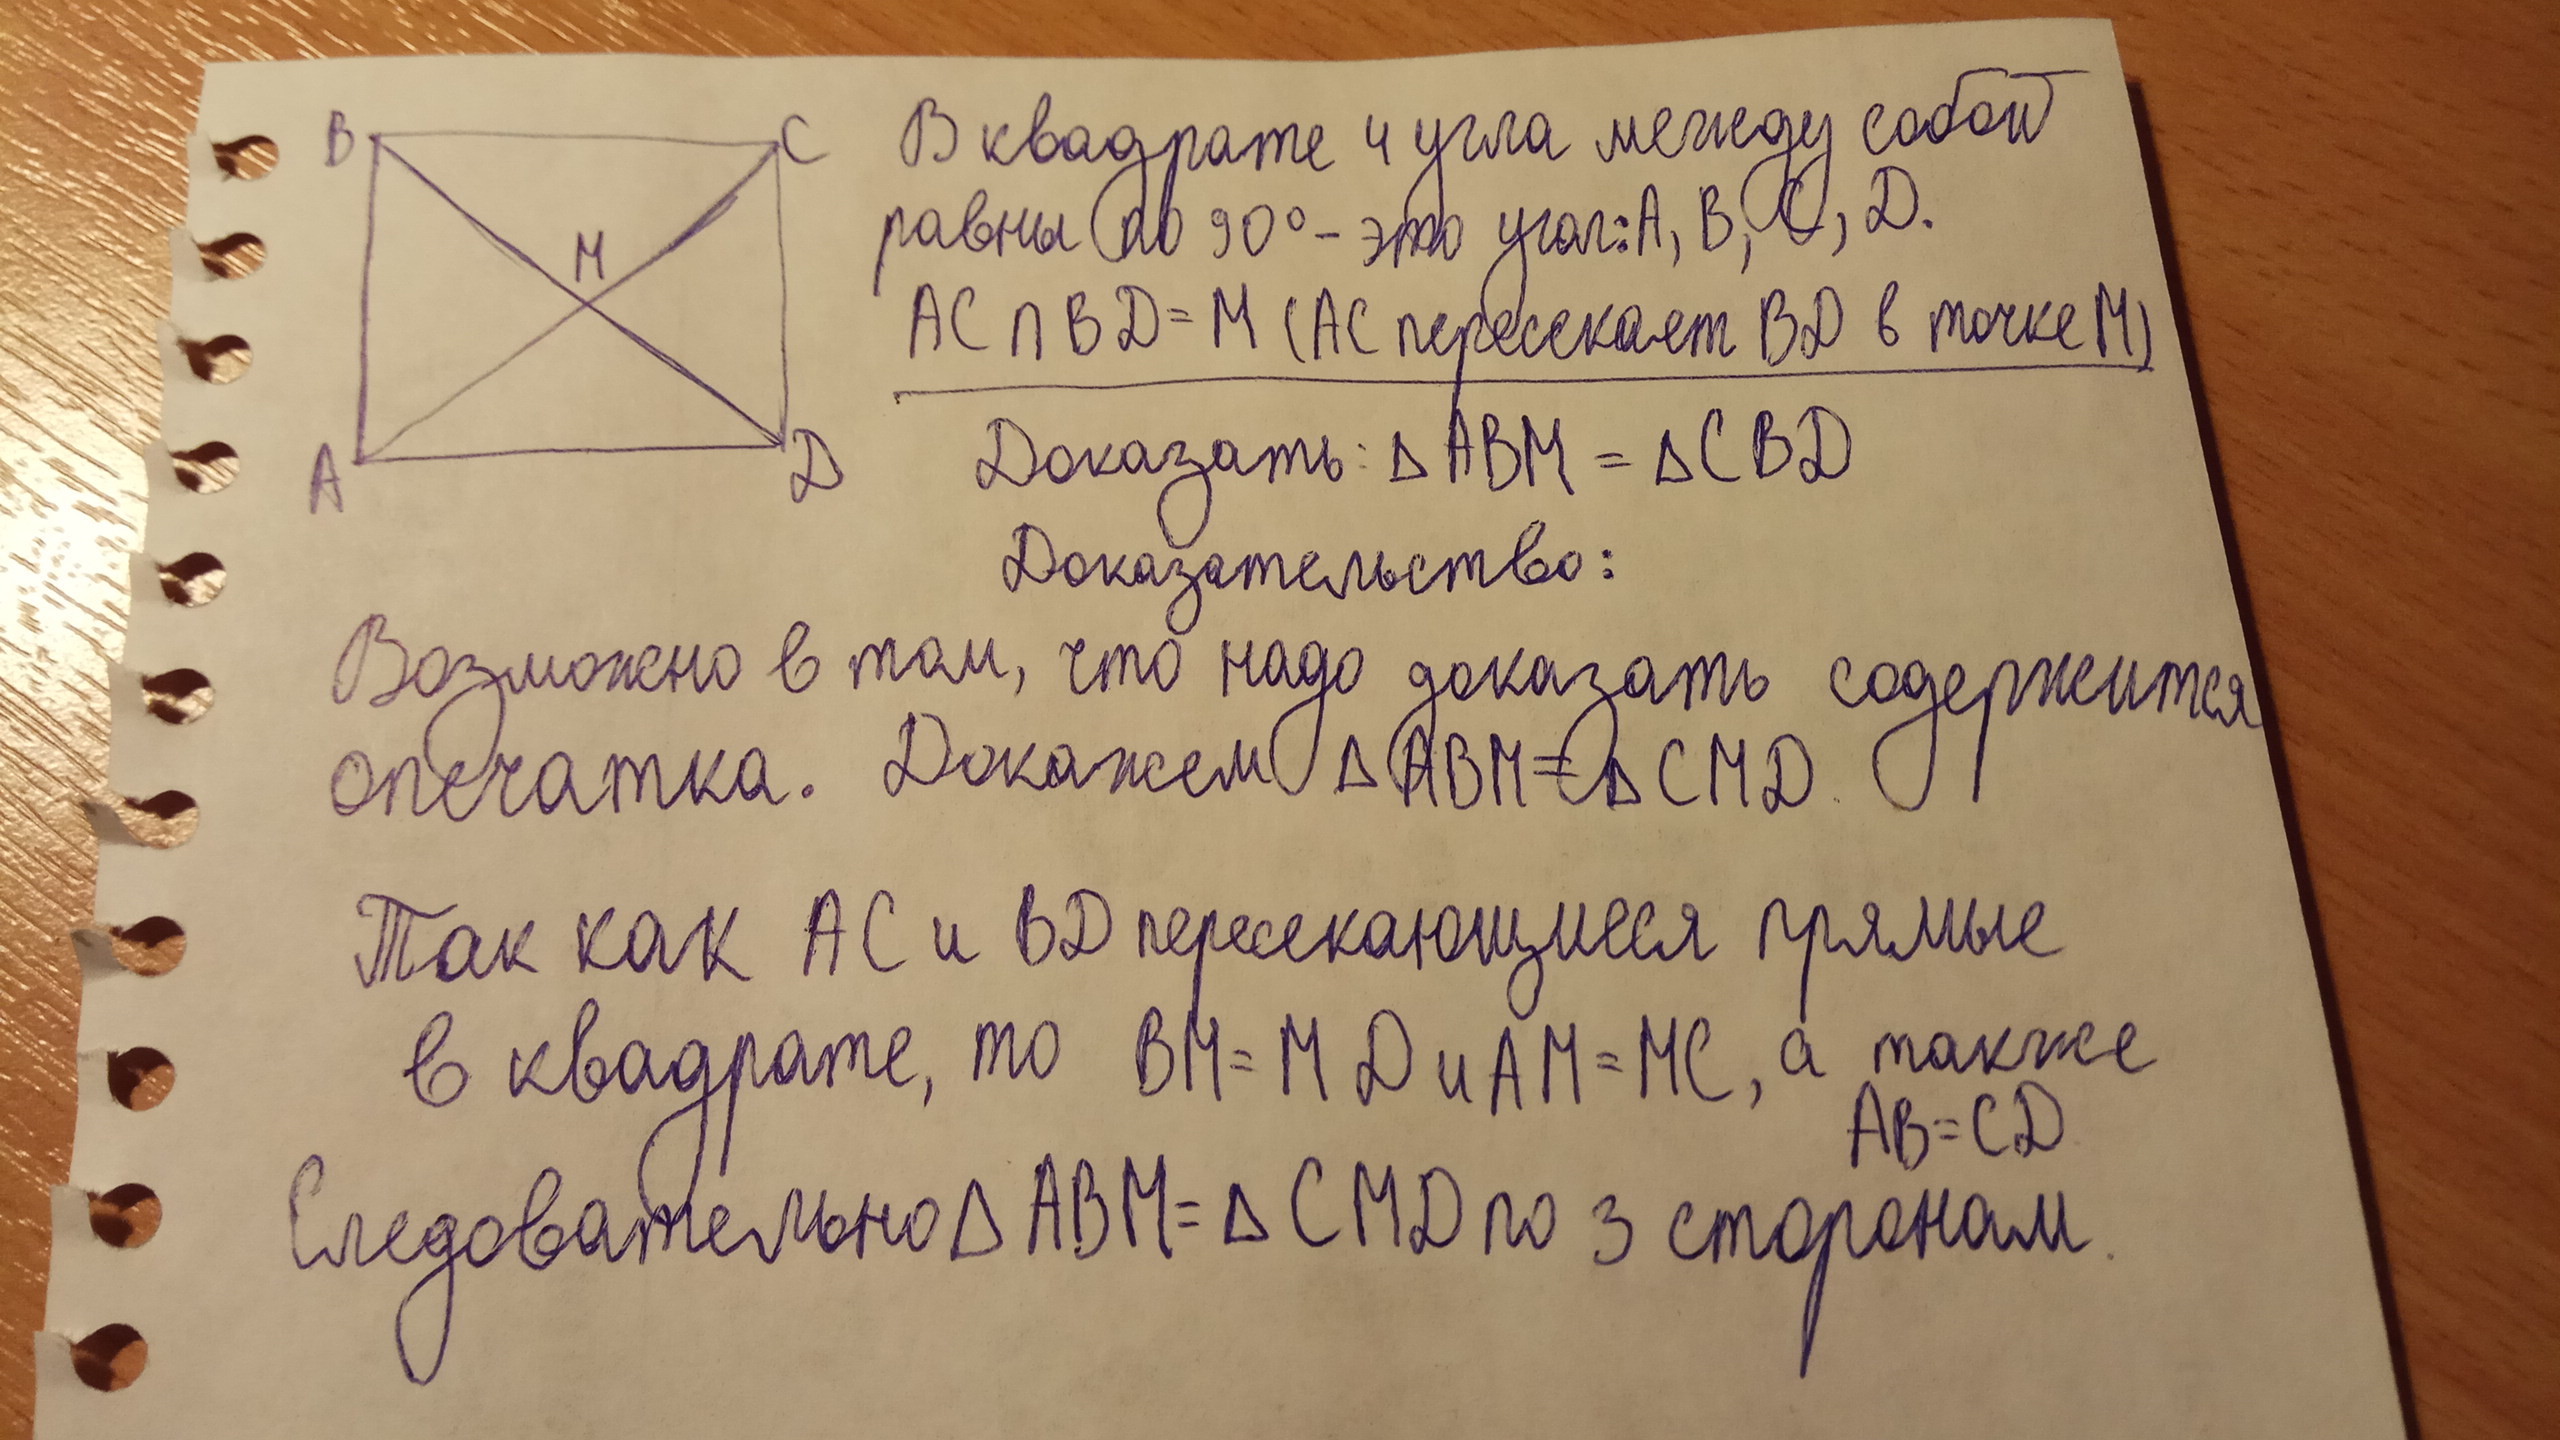 B
C
M
A
D
В квадрате 4 угла между собой
равны по 90° - это угол: A, B, C, D.
AC ∩ BD = M (AC пересекает BD в точке M)
Доказать: Δ ABM = Δ CBD
Доказательство:
Возможно в том, что надо доказать содержится
опечатка. Докажем Δ ABM = Δ CMD.
Так как AC и BD пересекающиеся прямые
в квадрате, то BM = MD и AM = MC, а также
AB = CD
Следовательно Δ ABM = Δ CMD по 3 сторонам.